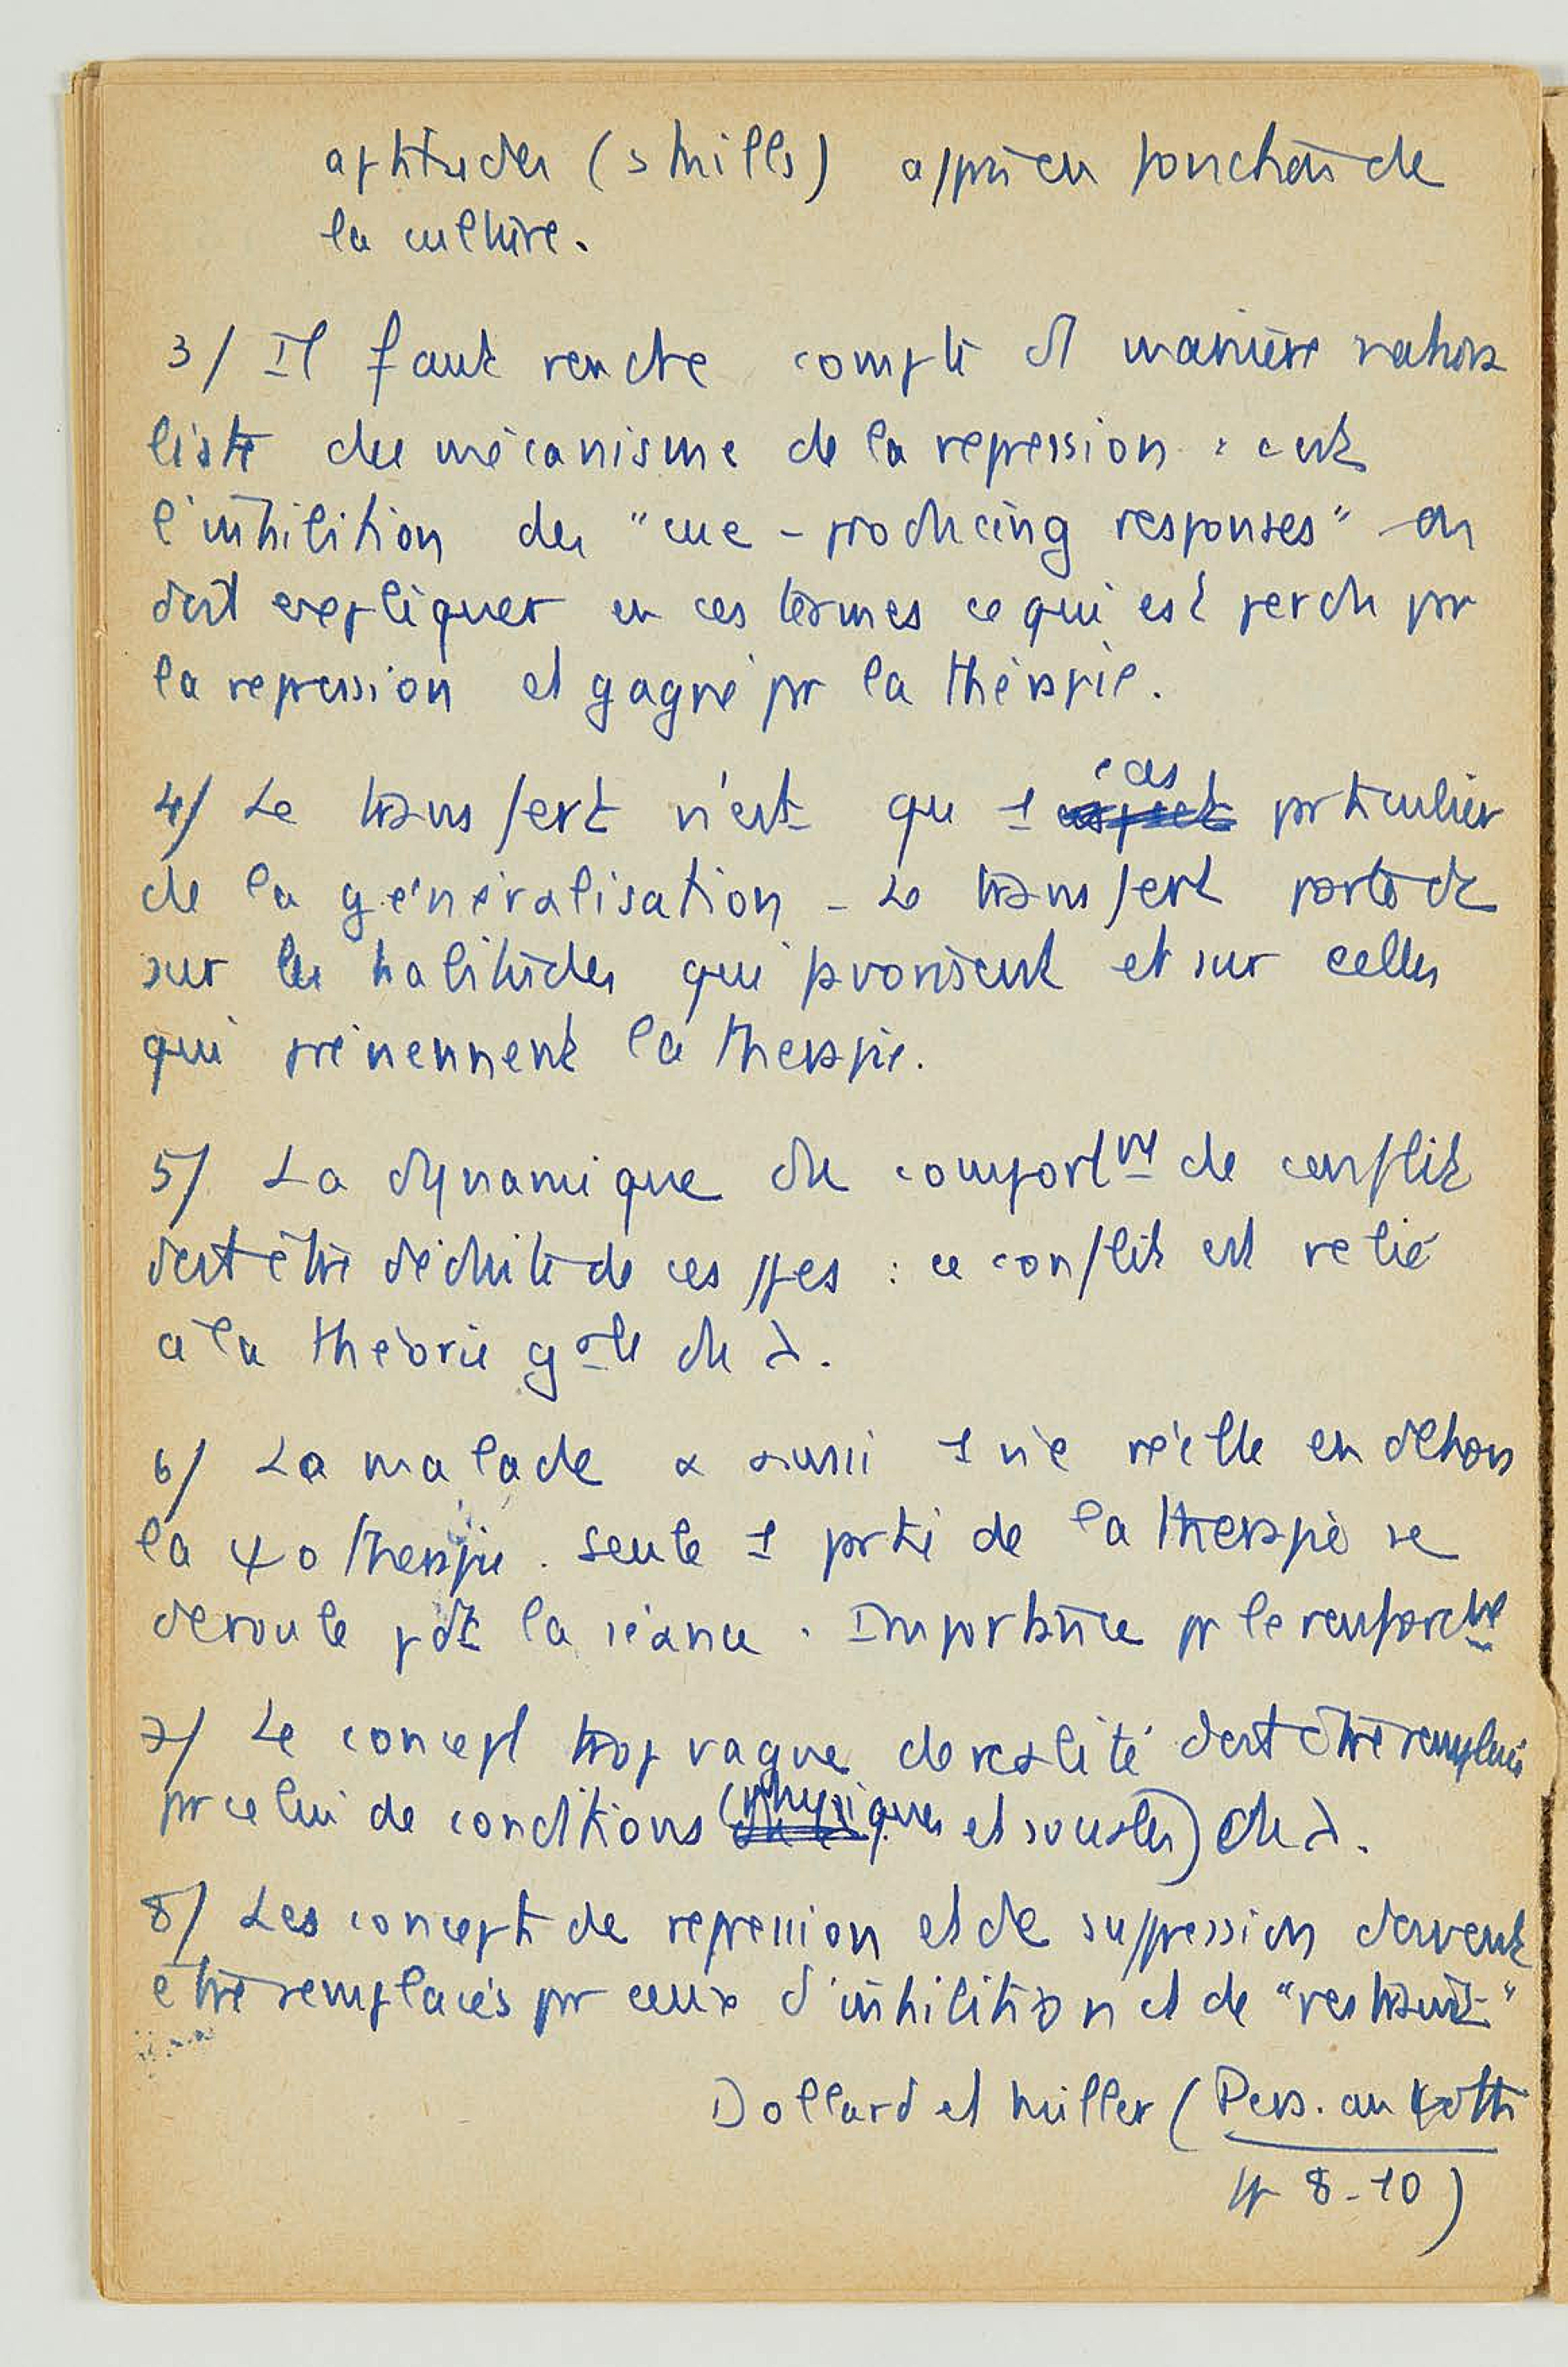 aptitudes (skills) apprises fonction de
la culture.
3/ Il faut rendre compte de manière rationa
liste du mécanisme de la repression : c'est
l'inhibition des "cue-producing responses" on
doit expliquer en ces termes ce qui est perdu pr
la repression et gagné pr la thérapie.
4/ Le transfert n'est qu 1 cas particulier
de la généralisation - Le transfert porte
sur les habitudes qui favorisent et sur celles
qui préviennent la therapie.
5/ La dynamique du comportnt de conflit
doit être déduite de ces ppes : ce conflit est relié
à la théorie gale du λ.
6/ La malade a aussi 1 vie réelle en dehors
la ψothérapie. Seule 1 partie de la therapie se
deroule pdt la séance. Importance pr le renforcnt
7/ Le concept trop vague de realité doit être remplacé
pr celui de conditions (physiques et sociales) du λ.
8/ Les concepts de repression et de suppression doivent
être remplacés pr ceux d'inhibition et de "restraint"
Dollard et Miller (Pers. and ψoth
pp 8-10)